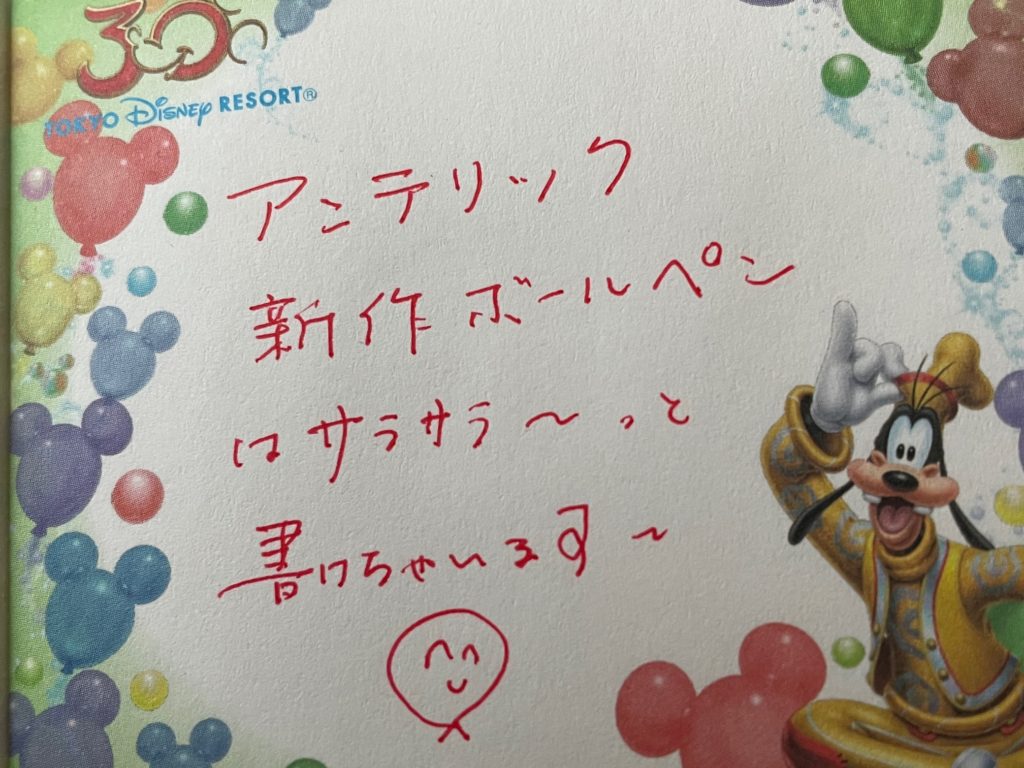 30
TOKYO DISNEY RESORT®
アンテリック
新作ボールペン
はサラサラ〜っと
書けちゃいます〜